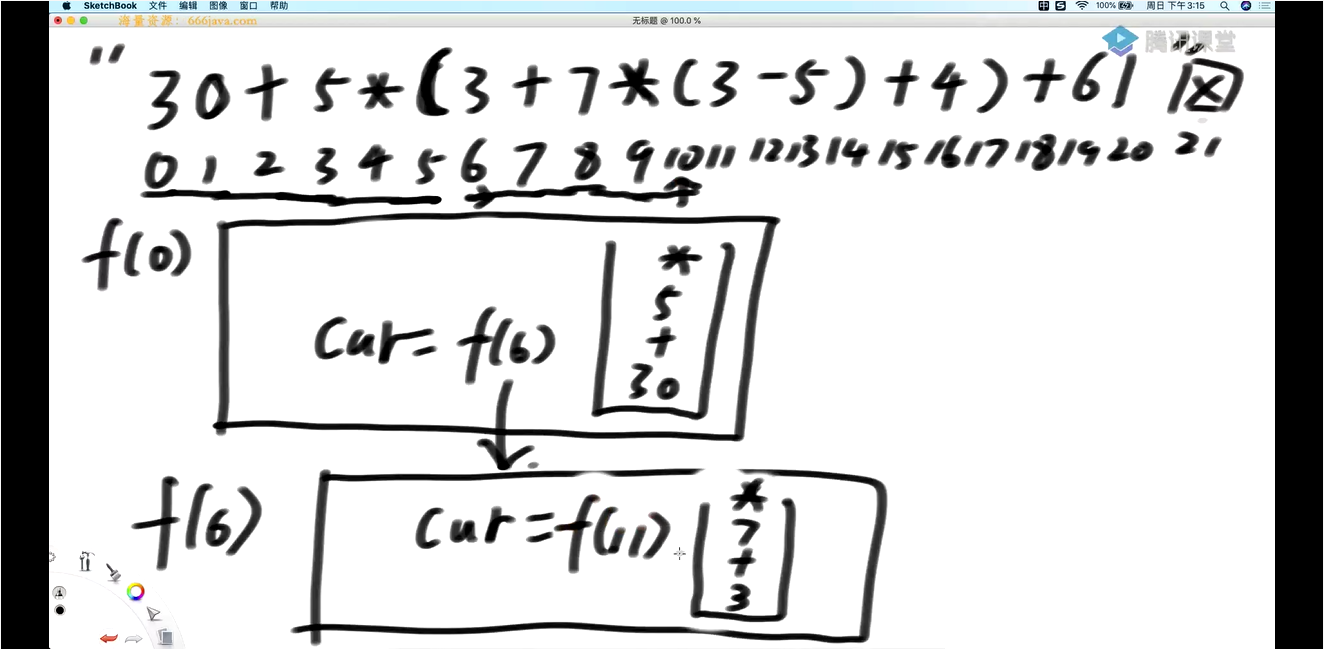 SketchBook 文件 编辑 图像 窗口 帮助 100% 周日下午3:15
海量资源：666java.com 无标题 @ 100.0 %
腾讯课堂
" 30+5*(3+7*(3-5)+4)+61
0 1 2 3 4 5 6 7 8 9 10 11 12 13 14 15 16 17 18 19 20 21
f(0)
*
5
cur= f(6)
+
30
f(6)
*
cur=f(11)
7
+
3